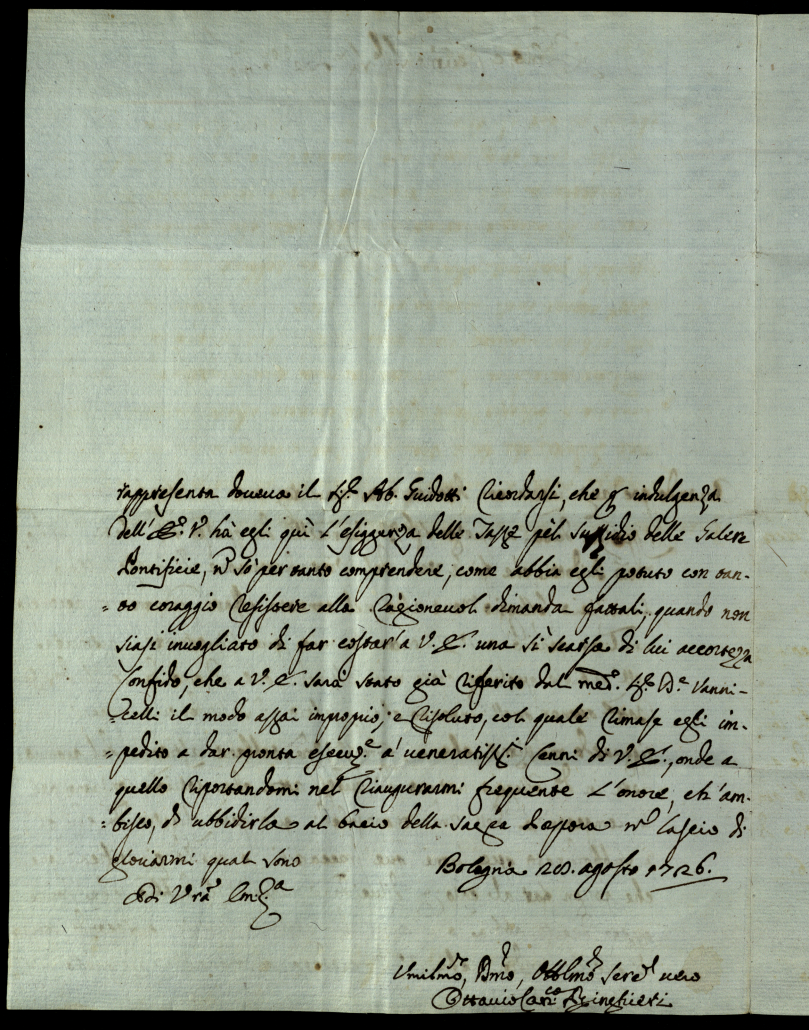 rappresenta doueua il Sig.r Ab. Guidotti ricordarsi, che p indulgenza
dell'E.a V. hà egli quì l'esiggenza delle Tasse pèl sussidio delle Galere
Pontificie, nò sò per tanto comprendere, come abbia egli potuto con tan-
=to coraggio resistere alla ragioneuol dimanda fattali, quando non
siasi inuogliato di far costar' a V. E. una sì scarsa di lui accortezza
Confido, che a V. E. sarà stato già riferito dal med.o Sig.r Vanni-
=celli il modo assai impropio, e risoluto, col quale rimase egli im-
=pedito a dar pronta esecuz.e a' ueneratiss.i Cenni di V. E., onde a
quello riportandomi nel riaugurarmi frequente l'onore, ch' am-
=bisco, di ubbidirla al bacio della sacra Porpora nò lascio di
glouarmi qual sono
Di V'ra Em.za
Bologna 28. agosto 1726.
Vmilmo, Dmo, Obblmo Serer uero
Ottauio Car.co Ringhieri